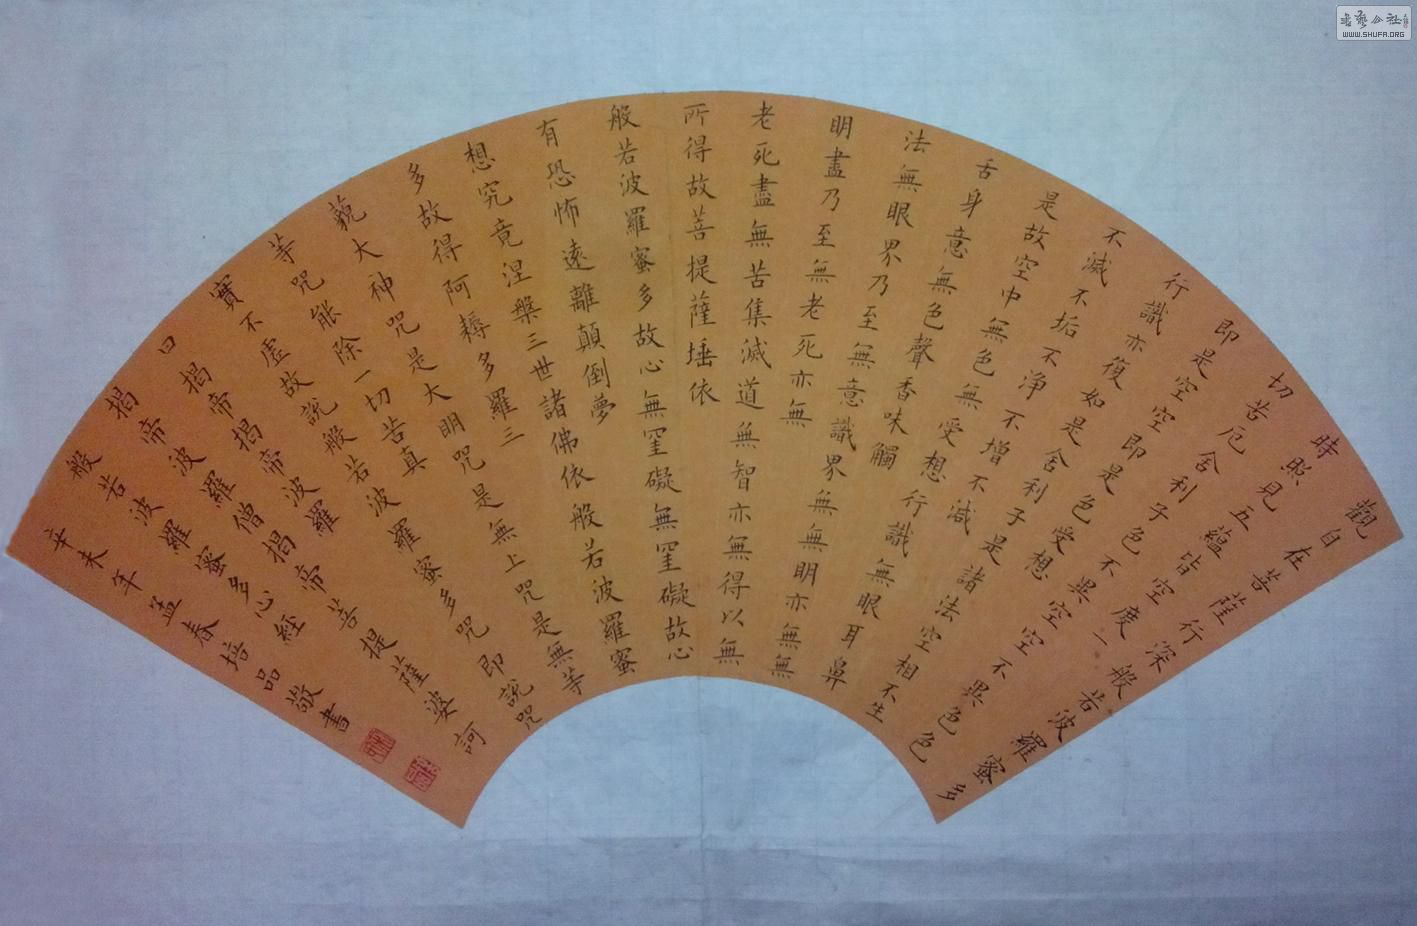 觀自在菩薩行深般若波羅蜜多
時照見五蘊皆空度一
切苦厄舍利子色不異空空不異色色
即是空空即是色受想
行識亦復如是舍利子是諸法空相不生
不滅不垢不淨不增不減
是故空中無色無受想行識無眼耳鼻
舌身意無色聲香味觸
法無眼界乃至無意識界無無明亦無無
明盡乃至無老死亦無
老死盡無苦集滅道無智亦無得以無
所得故菩提薩埵依
般若波羅蜜多故心無罣礙無罣礙故心
有恐怖遠離顛倒夢
想究竟涅槃三世諸佛依般若波羅蜜
多故得阿耨多羅三
藐大神咒是大明咒是無上咒是無等
等咒能除一切苦真
實不虛故說般若波羅蜜多咒即說咒
曰揭帝揭帝波羅
揭帝波羅僧揭帝菩提薩婆訶
般若波羅蜜多心經
辛未年孟春培品敬書
WWW.SHUFA.ORG